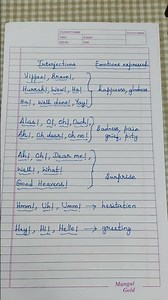 Interjections Emotions expressed
Yippee!, Bravo!,
Hurrah!, Wow!, Ha!
Ha!, Well done!, Yay!
happiness, gladness
Alas!, O!, Oh!, Ouch!,
Ah!, Oh dear!, oh no!
Sadness, pain
grief, pity
Ah!, Oh!, Dear me!,
Well!, What!
Good Heavens!
Surprise
Hmm!, Uh!, Umm! → hesitation
Hey!, Hi!, Hello! → greeting
Mangal
Gold